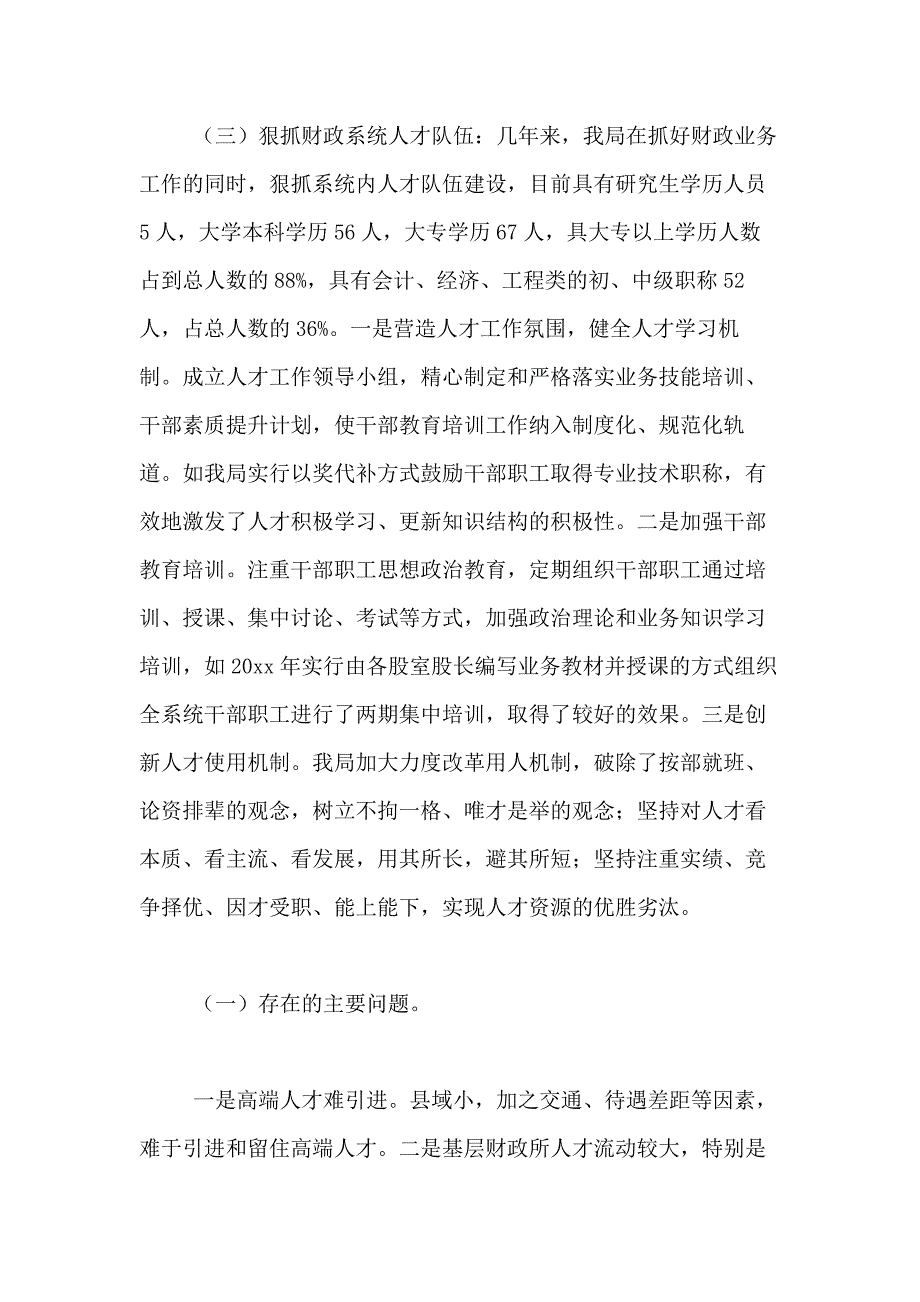 （三）狠抓财政系统人才队伍：几年来，我局在抓好财政业务
工作的同时，狠抓系统内人才队伍建设，目前具有研究生学历人员
5 人，大学本科学历 56 人，大专学历 67 人，具大专以上学历人数
占到总人数的 88%，具有会计、经济、工程类的初、中级职称 52
人，占总人数的 36%。一是营造人才工作氛围，健全人才学习机
制。成立人才工作领导小组，精心制定和严格落实业务技能培训、
干部素质提升计划，使干部教育培训工作纳入制度化、规范化轨
道。如我局实行以奖代补方式鼓励干部职工取得专业技术职称，有
效地激发了人才积极学习、更新知识结构的积极性。二是加强干部
教育培训。注重干部职工思想政治教育，定期组织干部职工通过培
训、授课、集中讨论、考试等方式，加强政治理论和业务知识学习
培训，如 20xx 年实行由各股室股长编写业务教材并授课的方式组织
全系统干部职工进行了两期集中培训，取得了较好的效果。三是创
新人才使用机制。我局加大力度改革用人机制，破除了按部就班、
论资排辈的观念，树立不拘一格、唯才是举的观念；坚持对人才看
本质、看主流、看发展，用其所长，避其所短；坚持注重实绩、竞
争择优、因才受职、能上能下，实现人才资源的优胜劣汰。
（一）存在的主要问题。
一是高端人才难引进。县域小，加之交通、待遇差距等因素，
难于引进和留住高端人才。二是基层财政所人才流动较大，特别是